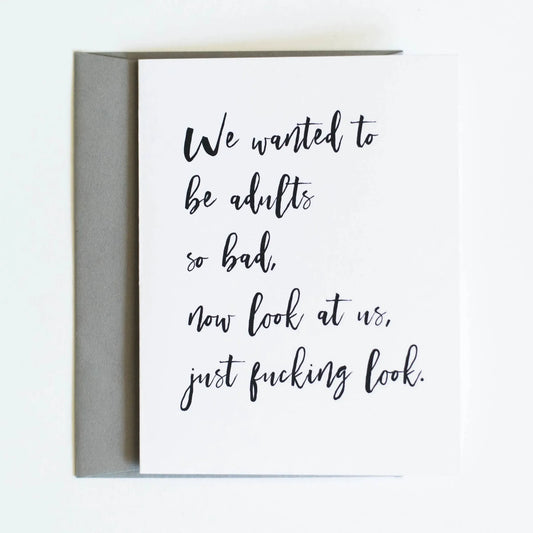 We wanted to
be adults
so bad,
now look at us,
just fucking look.